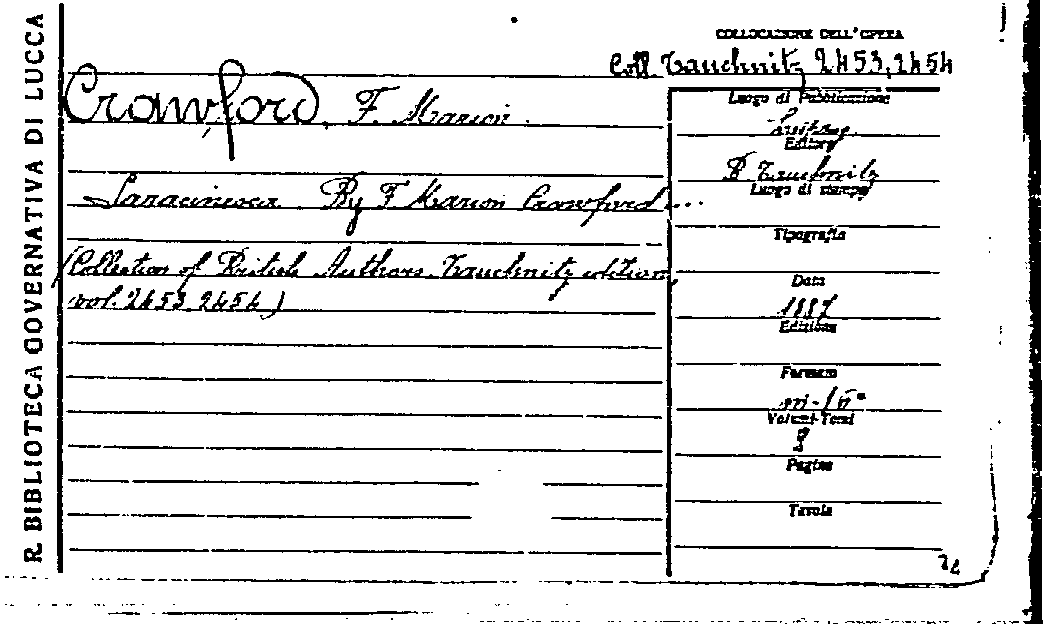 R. BIBLIOTECA GOVERNATIVA DI LUCCA
COLLOCAZIONE DELL'OPERA
Coll. Tauchnitz 2453, 2454
Crawford, F. Marion.
Saracinesca By F. Marion Crawford...
(Collection of British Authors. Tauchnitz edition,
vol. 2453, 2454)
Luogo di Pubblicazione
Leipzig
Editore
B. Tauchnitz
Luogo di stampa
Tipografia
Data
1887
Edizione
Formato
Volumi-Tomi
2
Pagine
Tavole